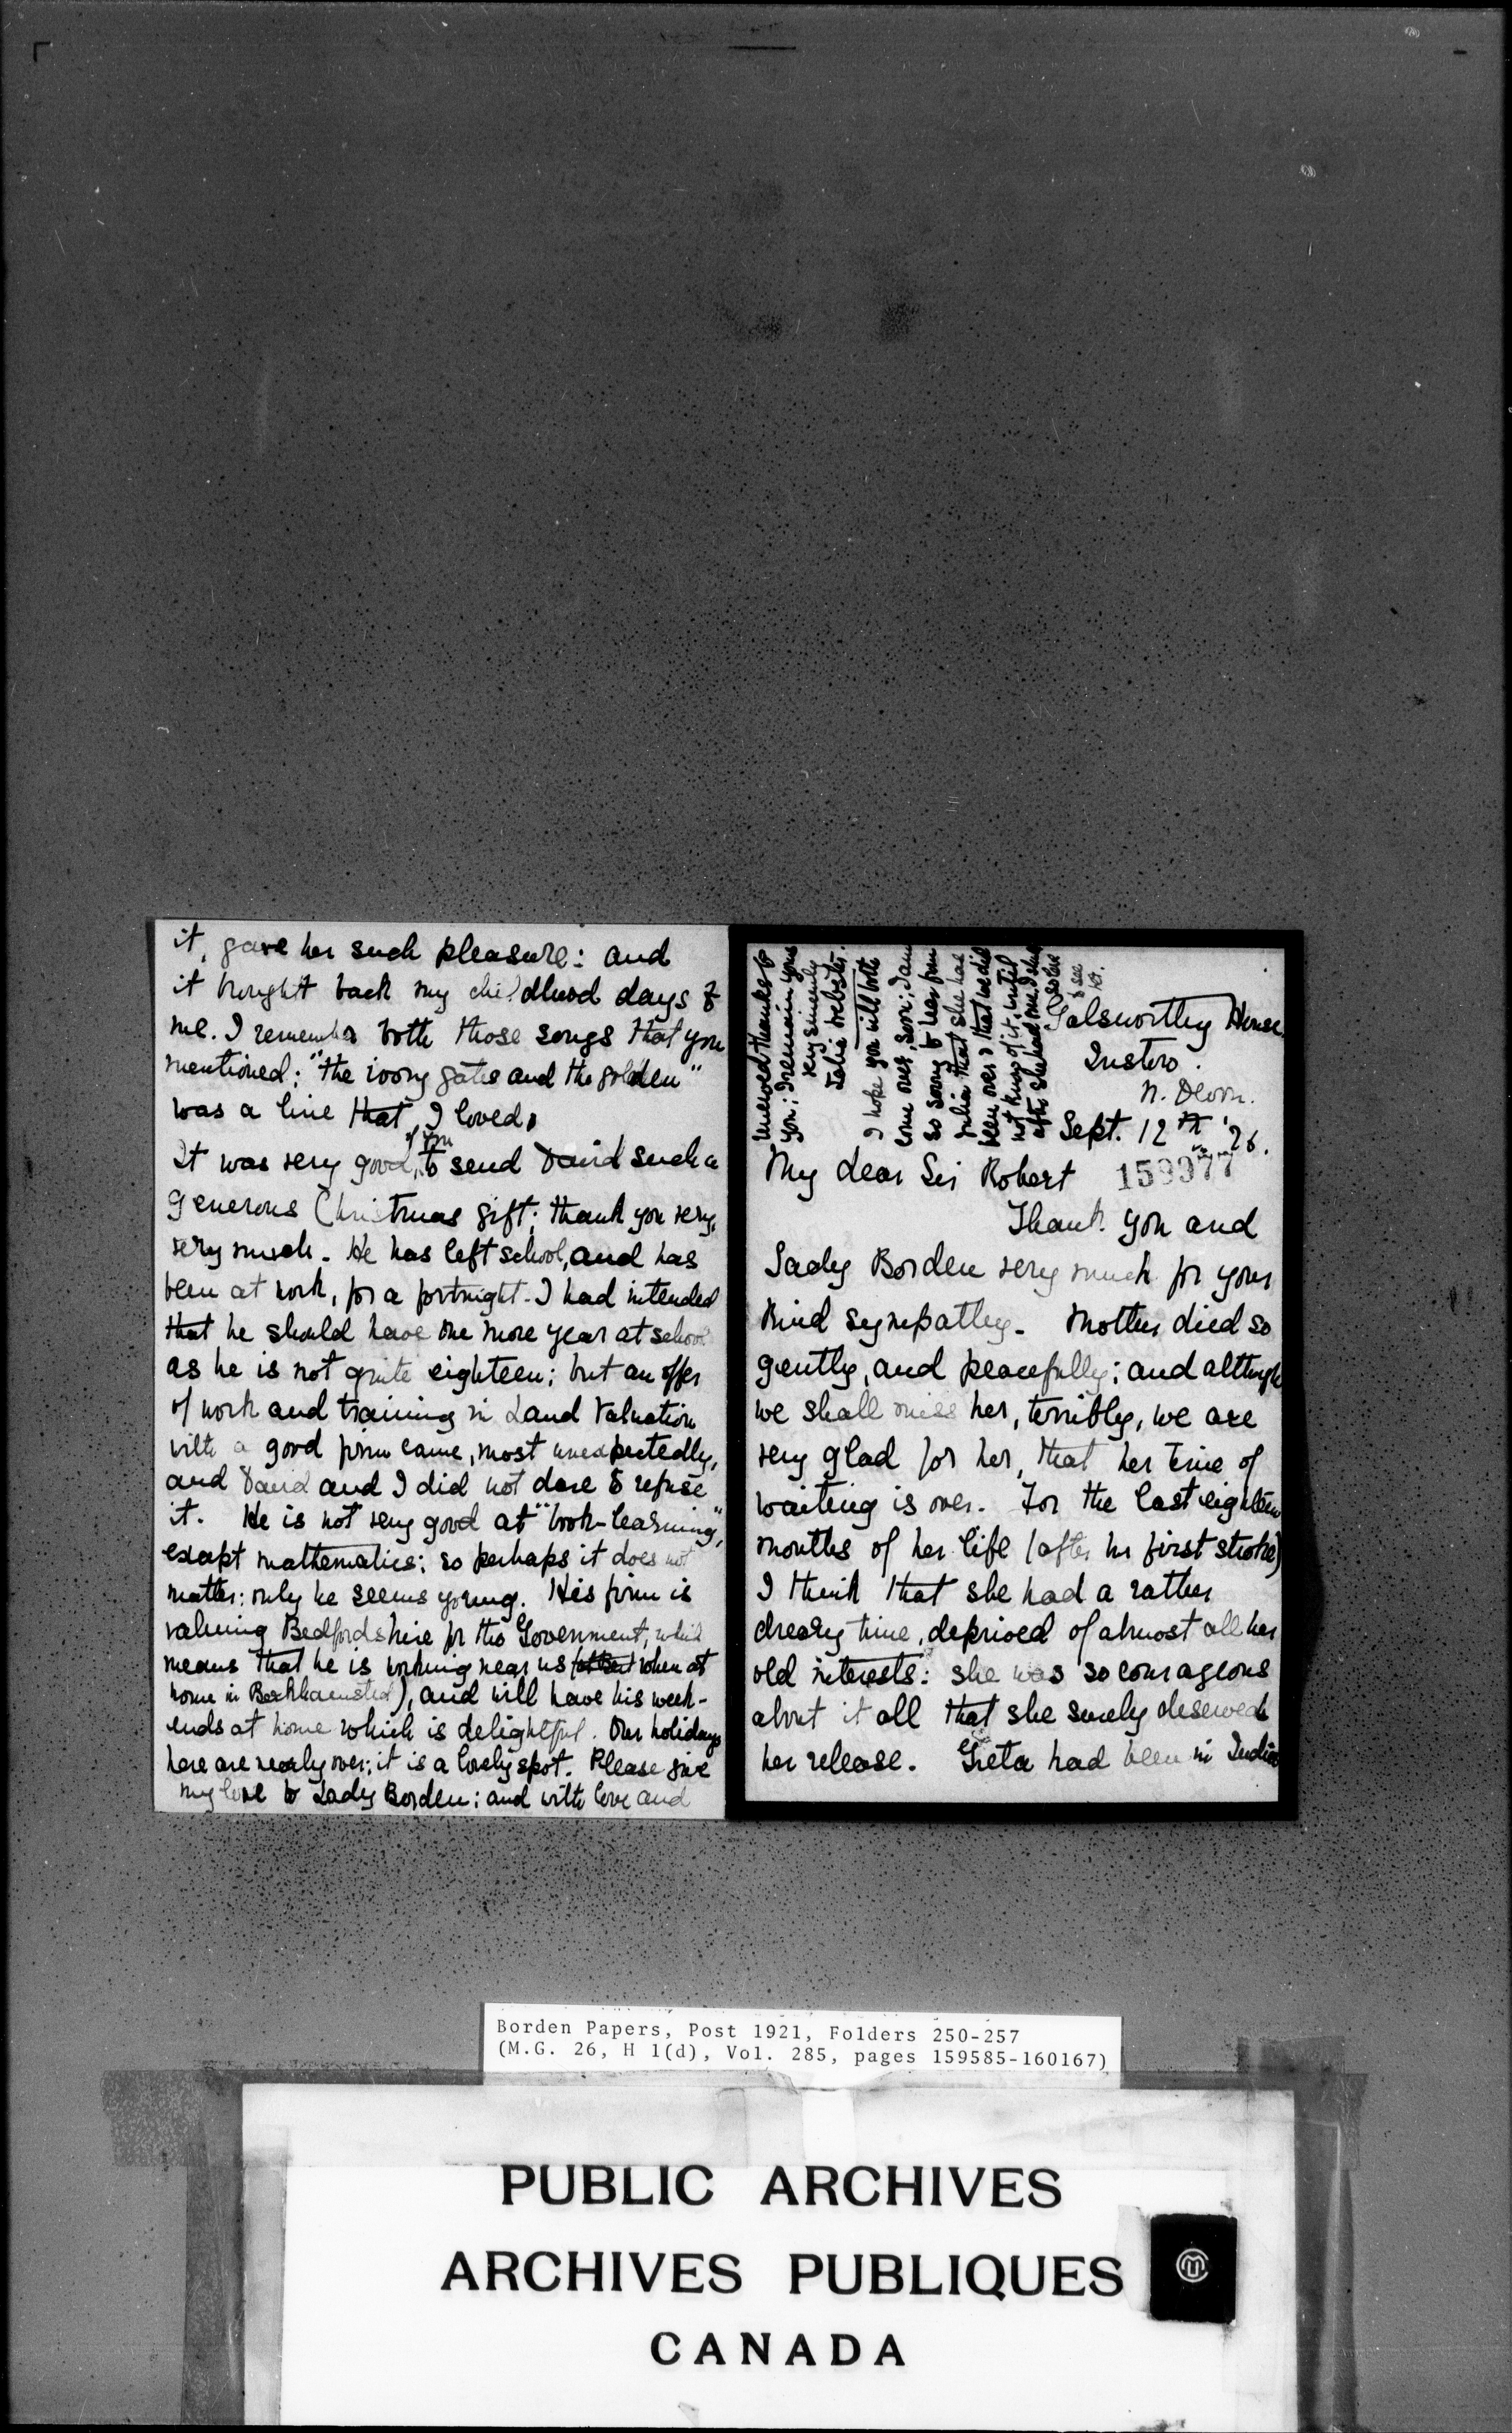 it, gave her such pleasure: and
it brought back my childhood days to
me. I remember both those songs that you
mentioned: "the ivory gates and the golden"
was a line that I loved.
It was very good of you to send David such a
generous Christmas gift; thank you very,
very much. He has left school, and has
been at work, for a fortnight. I had intended
that he should have one more year at school
as he is not quite eighteen; but an offer
of work and training in Land Valuation
with a good firm came, most unexpectedly,
and David and I did not dare to refuse
it. He is not very good at "book-learning",
except mathematics: so perhaps it does not
matter: only he seems young. His firm is
valuing Bedfordshire for the Government, which
means that he is working near us when at
home in Berkhamsted), and will have his week-
ends at home which is delightful. Our holidays
here are nearly over; it is a lovely spot. Please give
my love to Lady Borden: and with love and
renewed thanks to
you; I remain yours
very sincerely
Webster.
I hope you will both
come over, soon; I am
so sorry to hear from
Julia that she has
been over & that we did
not know of it, until
after she had
to see
her.
Galsworthy House
Instow.
N. Devon.
Sept. 12th '26.
My dear Sir Robert
159977
Thank you and
Lady Borden very much for your
kind sympathy. Mother died so
gently, and peacefully; and although
we shall miss her, terribly, we are
very glad for her, that her time of
waiting is over. For the last eighteen
months of her life (after her first stroke)
I think that she had a rather
dreary time, deprived of almost all her
old interests: she was so courageous
about it all that she surely deserved
her release. Greta had been in India
Borden Papers, Post 1921, Folders 250-257
(M.G. 26, H 1(d), Vol. 285, pages 159585-160167)
PUBLIC ARCHIVES
ARCHIVES PUBLIQUES
CANADA